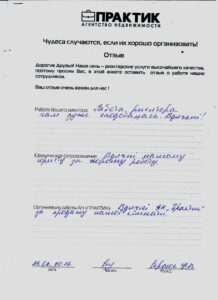 ПРАКТИК
АГЕНТСТВО НЕДВИЖИМОСТИ
Чудеса случаются, если их хорошо организовать!
Отзыв
Дорогие Друзья! Наша цель – риэлтерские услуги высочайшего качества,
поэтому просим Вас, в этой анкете оставить отзыв о работе наших
сотрудников.
Ваш отзыв очень важен для нас !
Работа Вашего риэлтора: Работа риэлтора
нам очень понравилась.
юриста: нашему
юристу за хорошую работу.
Организация работы АН «ПРАКТИК»: АН "Практик"
за продажу нашей комнаты.
2016
Дата